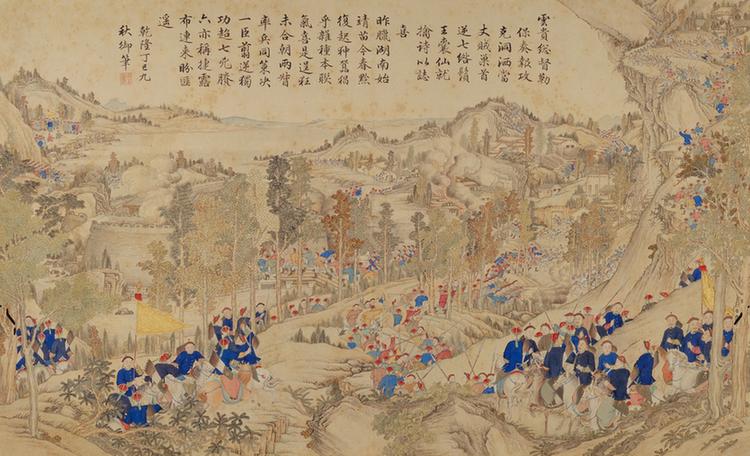 雲貴總督勒
保奏報攻
克洞洒當
丈賊巢首
逆七綹鬚
王囊仙就
擒詩以誌
喜
昨臘湖南始
靖苗今春黔
復起种猖
乎雜種本
氣喜是逞狂
未合朝兩督
率兵同策决
一臣剪逆獨
功超七
六亦稱捷露
布連来盼匪
遥
乾隆丁巳九
秋御筆